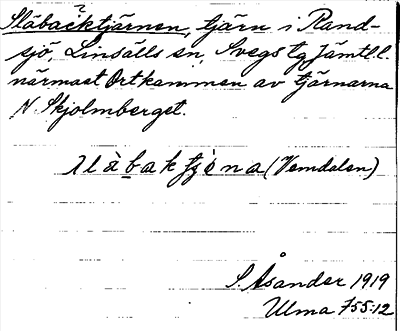 ?
Släbacktjärnen, tjärn i Rand-
sjö, Linsälls sn, Svegs tg Jämtl.l.
närmast Ortkammen av tjärnarna
N. Skjolmberget.
slàbaktjóna (Vemdalen)
S. Åsander 1919
Ulma 755:12